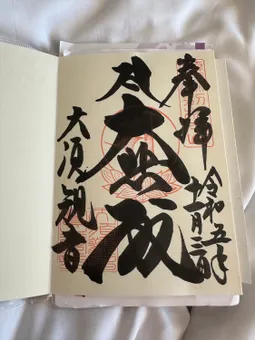 奉拝
令和五年
十一月
大悲殿
大須観音